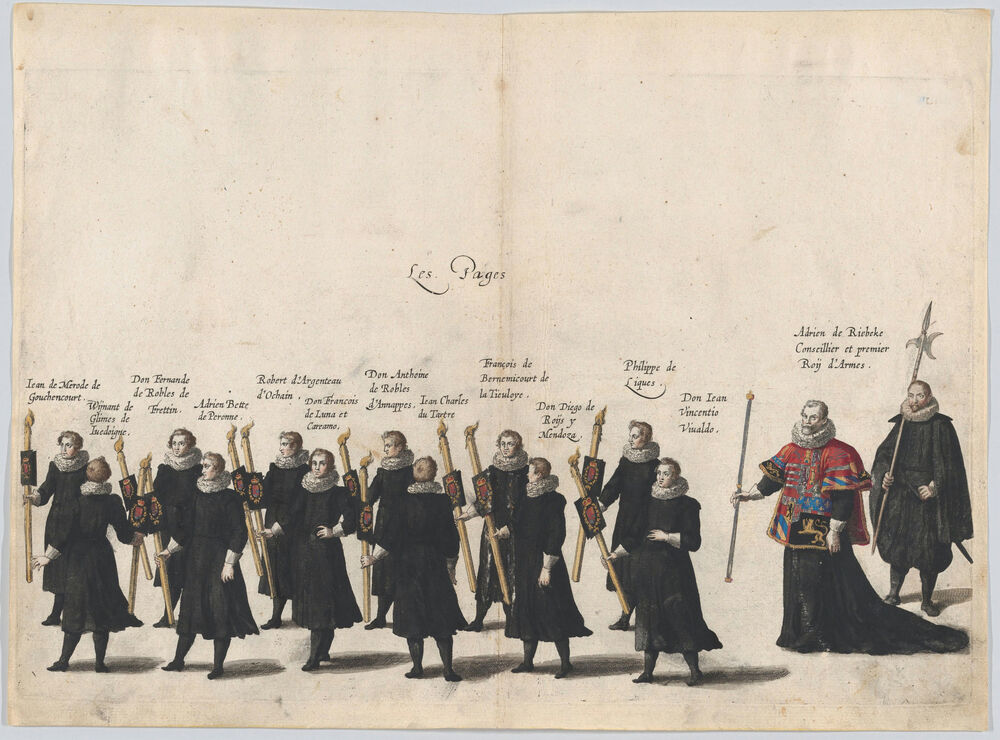 Les Pages
Iean de Merode de
Gouchencourt.
Wijnant de
Glimes de
Iuedoigne.
Don Fernande
de Robles de
Frettin.
Adrien Bette
de Peronne.
Robert d'Argenteau
d'Ochain.
Don François
de Luna et
Carcamo.
Don Anthoine
de Robles
d'Annappes.
Iean Charles
du Tartre
François de
Bernemicourt de
la Tieuloye.
Don Diego de
Roijs y
Mendoza.
Philippe de
Liques.
Don Iean
Vincentio
Viualdo.
Adrien de Riebeke
Conseillier et premier
Roij d'Armes.